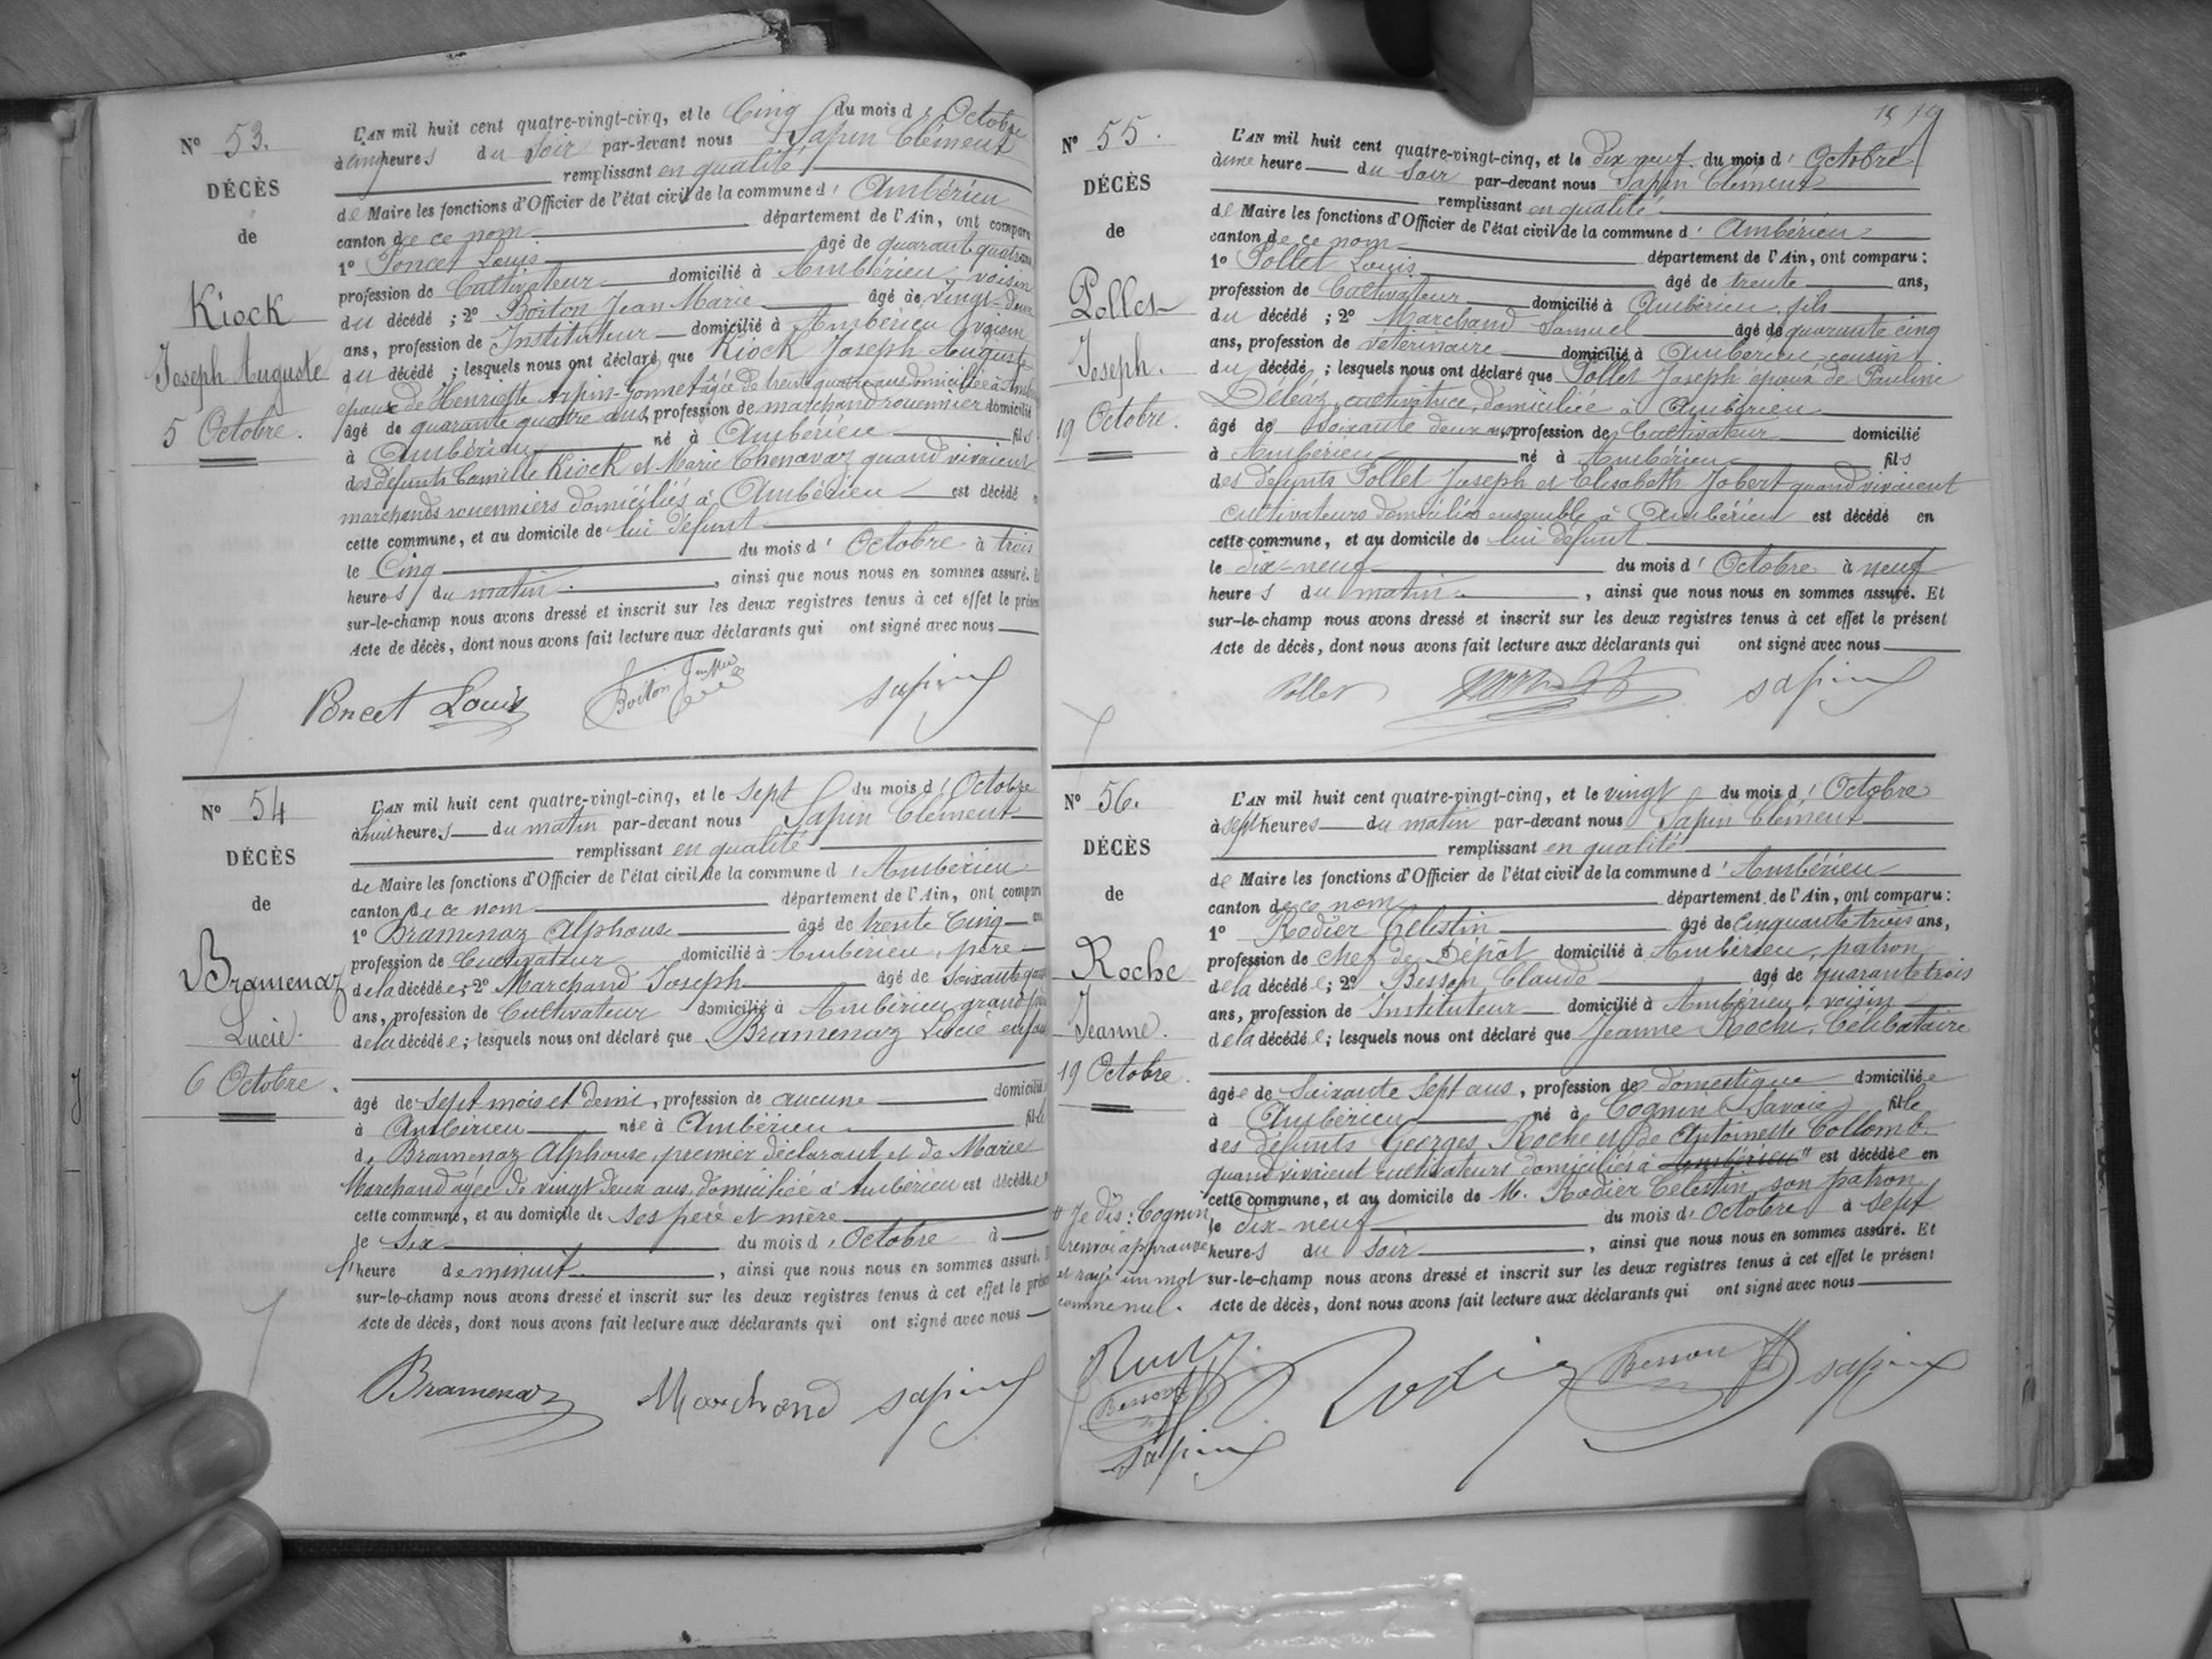 N° 53.
DÉCÈS
de
Kiock
Joseph Auguste
5 Octobre.
L'AN mil huit cent quatre-vingt-cinq, et le Cinq du mois d'Octobre
à cinq heures du soir par-devant nous Sapin Clément
remplissant en qualité
de Maire les fonctions d'Officier de l'état civil de la commune d'Ambérieu
canton de ce nom département de l'Ain, ont comparu
1° Poncet Louis âgé de quarante quatre ans
profession de Cultivateur domicilié à Ambérieu, voisin
du décédé ; 2° Boiton Jean-Marie âgé de vingt-deux
ans, profession de Instituteur domicilié à Ambérieu voisin
du décédé ; lesquels nous ont déclaré que Kiock Joseph Auguste
époux de Henriette Arpin-Gonnet âgée de trente quatre ans domiciliée à
âgé de quarante quatre ans, profession de marchand rouennier domicilié
à Ambérieu né à Ambérieu fils
des défunts Camille Kiock et Marie Chenavaz quand vivaient
marchands rouenniers domiciliés à Ambérieu est décédé
cette commune, et au domicile de lui défunt
le Cinq du mois d'Octobre à trois
heures du matin, ainsi que nous nous en sommes assuré.
sur-le-champ nous avons dressé et inscrit sur les deux registres tenus à cet effet le présent
Acte de décès, dont nous avons fait lecture aux déclarants qui ont signé avec nous
Poncet Louis Boiton Sapin
N° 54
DÉCÈS
de
Bramenaz
Lucie.
6 Octobre.
L'AN mil huit cent quatre-vingt-cinq, et le sept du mois d'Octobre
à huit heures du matin par-devant nous Sapin Clément
remplissant en qualité
de Maire les fonctions d'Officier de l'état civil de la commune d'Ambérieu
canton de ce nom département de l'Ain, ont comparu
1° Bramenaz Alphonse âgé de trente Cinq
profession de Cultivateur domicilié à Ambérieu, père
de la décédée ; 2° Marchand Joseph âgé de soixante
ans, profession de Cultivateur domicilié à Ambérieu grand père
de la décédée ; lesquels nous ont déclaré que Bramenaz Lucie enfant
âgé de sept mois et demi, profession de aucune domicilié
à Ambérieu née à Ambérieu fille
de Bramenaz Alphonse, premier déclarant et de Marie
Marchand âgée de vingt deux ans, domiciliée à Ambérieu est décédée
cette commune, et au domicile de ses père et mère
le Six du mois d'Octobre à
l'heure de minuit, ainsi que nous nous en sommes assuré.
sur-le-champ nous avons dressé et inscrit sur les deux registres tenus à cet effet le présent
Acte de décès, dont nous avons fait lecture aux déclarants qui ont signé avec nous
Bramenaz Marchand Sapin
19
N° 55.
DÉCÈS
de
Pollet
Joseph.
19 Octobre.
L'AN mil huit cent quatre-vingt-cinq, et le dix neuf du mois d'Octobre
à une heure du soir par-devant nous Sapin Clément
remplissant en qualité
de Maire les fonctions d'Officier de l'état civil de la commune d'Ambérieu
canton de ce nom département de l'Ain, ont comparu :
1° Pollet Louis âgé de trente ans,
profession de Cultivateur domicilié à Ambérieu fils
du décédé ; 2° Marchand Samuel âgé de quarante cinq
ans, profession de Vétérinaire domicilié à Ambérieu cousin
du décédé ; lesquels nous ont déclaré que Pollet Joseph époux de Pauline
Débaz, cultivatrice, domiciliée à Ambérieu
âgé de soixante deux ans, profession de Cultivateur domicilié
à Ambérieu né à Ambérieu fils
des défunts Pollet Joseph et Elisabeth Jobert quand vivaient
cultivateurs domiciliés ensemble à Ambérieu est décédé en
cette commune, et au domicile de lui défunt
le dix-neuf du mois d'Octobre à neuf
heures du matin, ainsi que nous nous en sommes assuré. Et
sur-le-champ nous avons dressé et inscrit sur les deux registres tenus à cet effet le présent
Acte de décès, dont nous avons fait lecture aux déclarants qui ont signé avec nous
Pollet Sapin
N° 56.
DÉCÈS
de
Roche
Jeanne.
19 Octobre.
L'AN mil huit cent quatre-vingt-cinq, et le vingt du mois d'Octobre
à sept heures du matin par-devant nous Sapin Clément
remplissant en qualité
de Maire les fonctions d'Officier de l'état civil de la commune d'Ambérieu
canton de ce nom département de l'Ain, ont comparu :
1° Rodier Célestin âgé de Cinquante trois ans,
profession de chef de Dépôt domicilié à Ambérieu, patron
de la décédée ; 2° Besson Claude âgé de quarante trois
ans, profession de Instituteur domicilié à Ambérieu, voisin
de la décédée ; lesquels nous ont déclaré que Jeanne Roche, Célibataire
âgée de Soixante Sept ans, profession de domestique domiciliée
à Ambérieu né à Cognin (Savoie) fille
des défunts Georges Roche et de Antoinette Collomb
quand vivaient cultivateurs domiciliés à Ambérieu " est décédée en
cette commune, et au domicile de M. Rodier Célestin, son patron
le dix-neuf du mois d'Octobre à sept
heures du soir, ainsi que nous nous en sommes assuré. Et
sur-le-champ nous avons dressé et inscrit sur les deux registres tenus à cet effet le présent
Acte de décès, dont nous avons fait lecture aux déclarants qui ont signé avec nous
" Je dis : Cognin
renvoi approuvé
et rayé un mot
comme nul.
Besson
Sapin
Besson Sapin